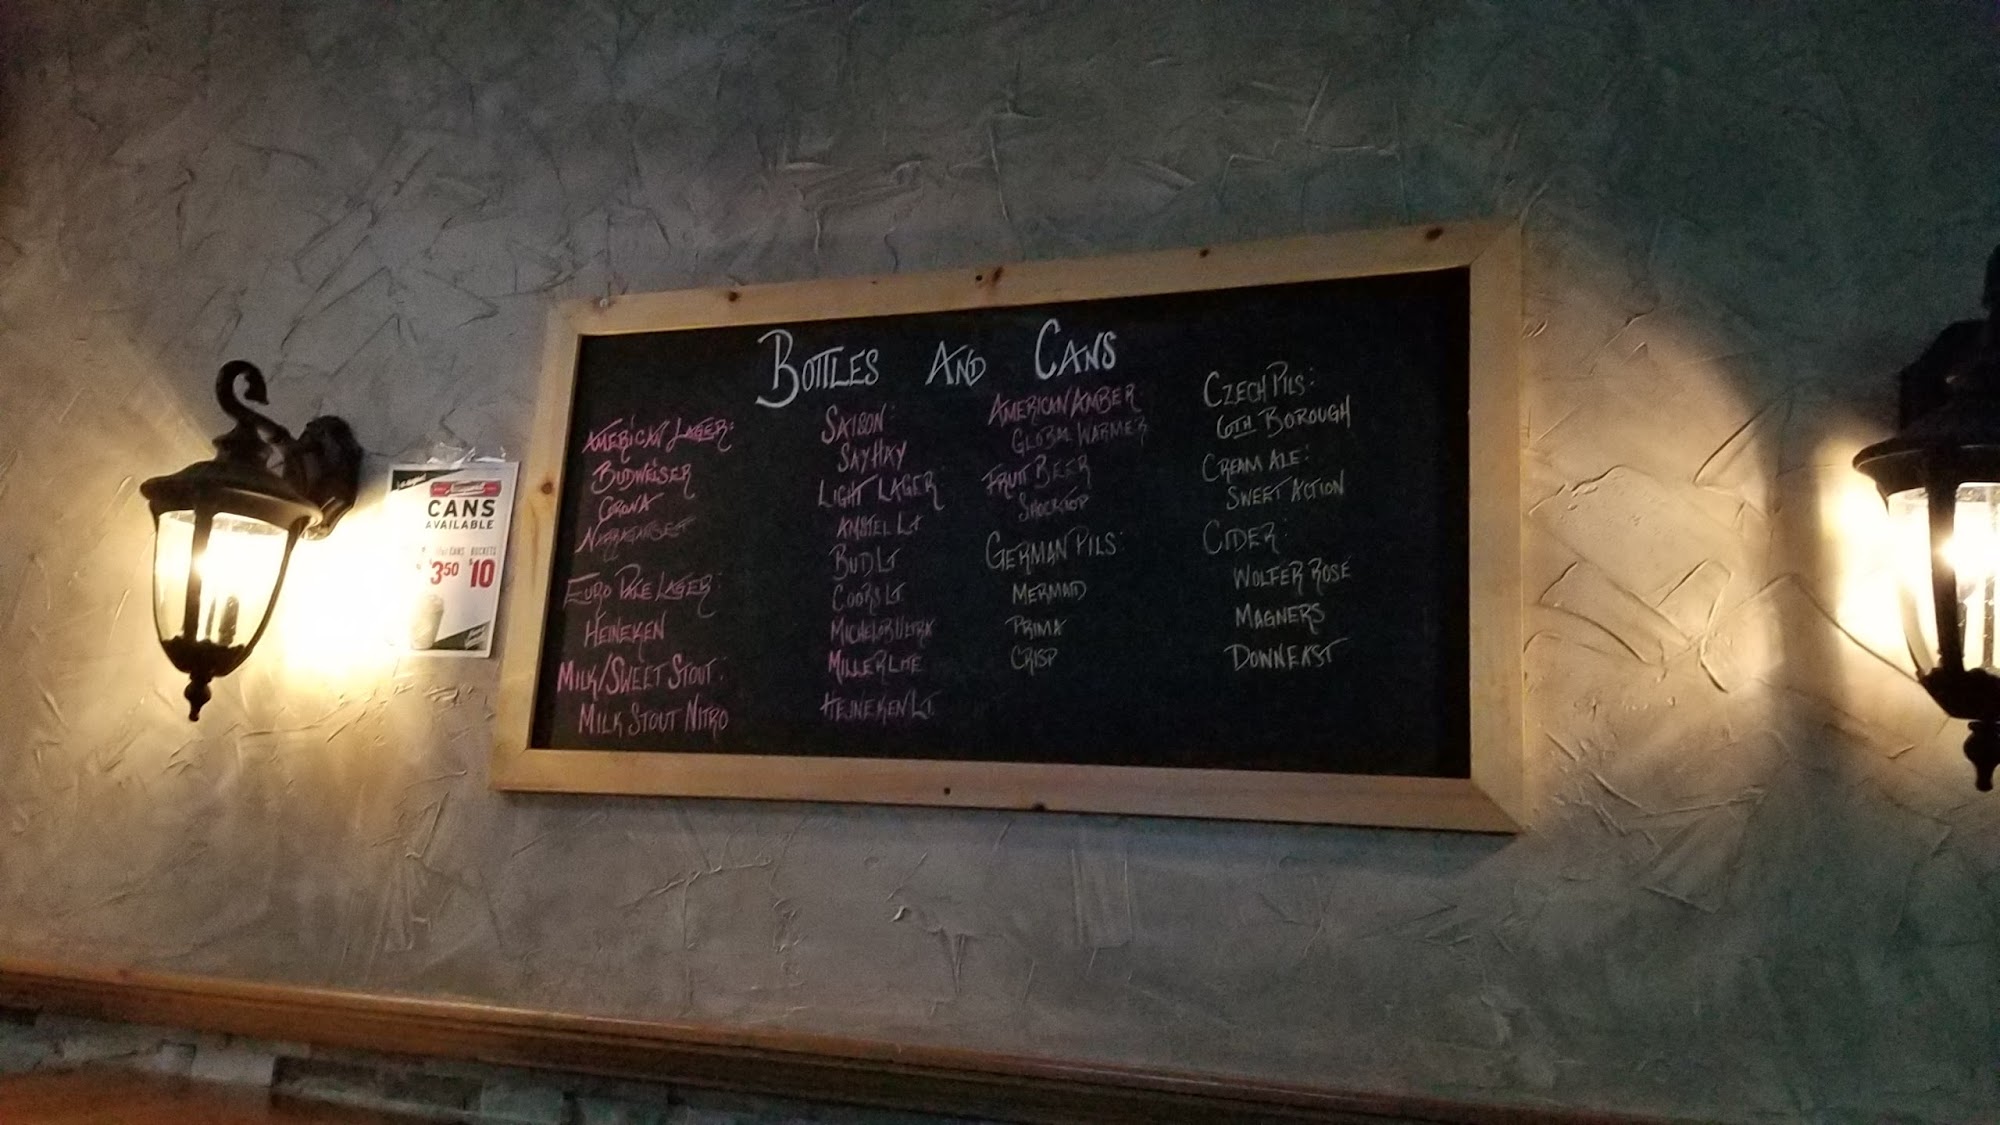 CANS
AVAILABLE
CANS BUCKETS
$3.50 $10
BOTTLES AND CANS
AMERICAN LAGER:
BUDWEISER
CORONA
NARRAGANSETT
EURO PALE LAGER:
HEINEKEN
MILK/SWEET STOUT:
MILK STOUT NITRO
SAISON:
SAYHAY
LIGHT LAGER
AMSTEL LT
BUD LT
COORS LT
MICHELOB ULTRA
MILLER LITE
HEINEKEN LT.
AMERICAN AMBER
GLOBAL WARMER
FRUIT BEER
SHOCKTOP
GERMAN PILS:
MERMAID
PRIMA
CRISP
CZECH PILS:
6TH BOROUGH
CREAM ALE:
SWEET ACTION
CIDER:
WOLFER ROSE
MAGNERS
DOWNEAST